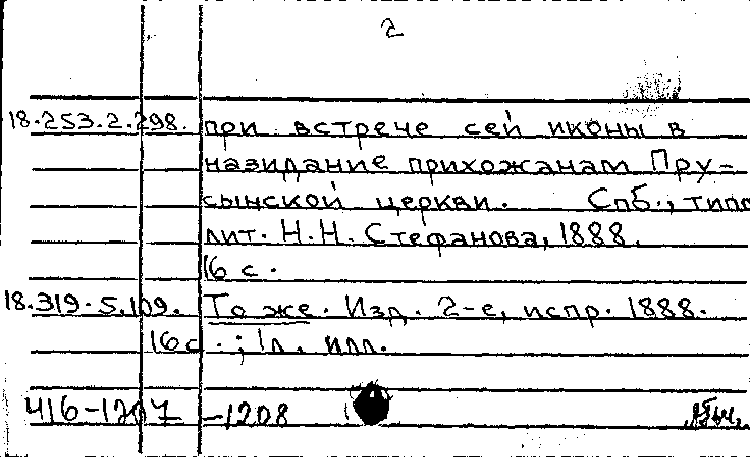 2
18.253.2.298. при встрече сей иконы в
назидание прихожанам Пру-
сынской церкви. Спб., типо
лит. Н.Н. Стефанова, 1888.
16 с.
18.319.5.109. То же. Изд. 2-е, испр. 1888.
16 с.; 1 л. илл.
416-1207 -1208